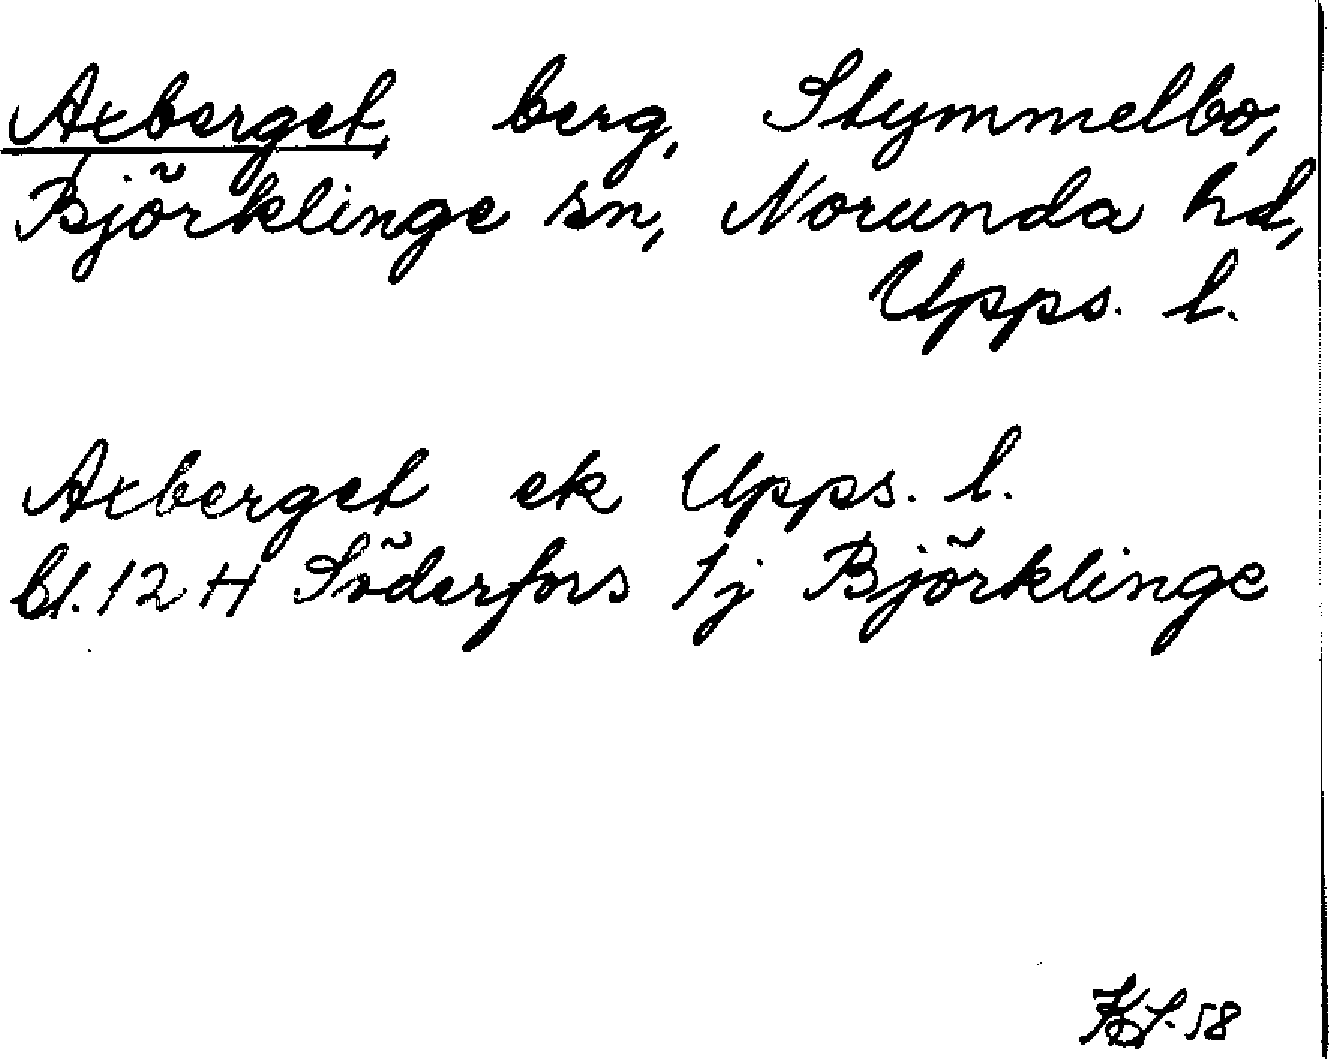 Axberget, berg, Stymmelbo,
Björklinge sn, Norunda hd,
Upps. l.
Axberget ek Upps. l.
bl. 12 H Söderfors 1j Björklinge
58